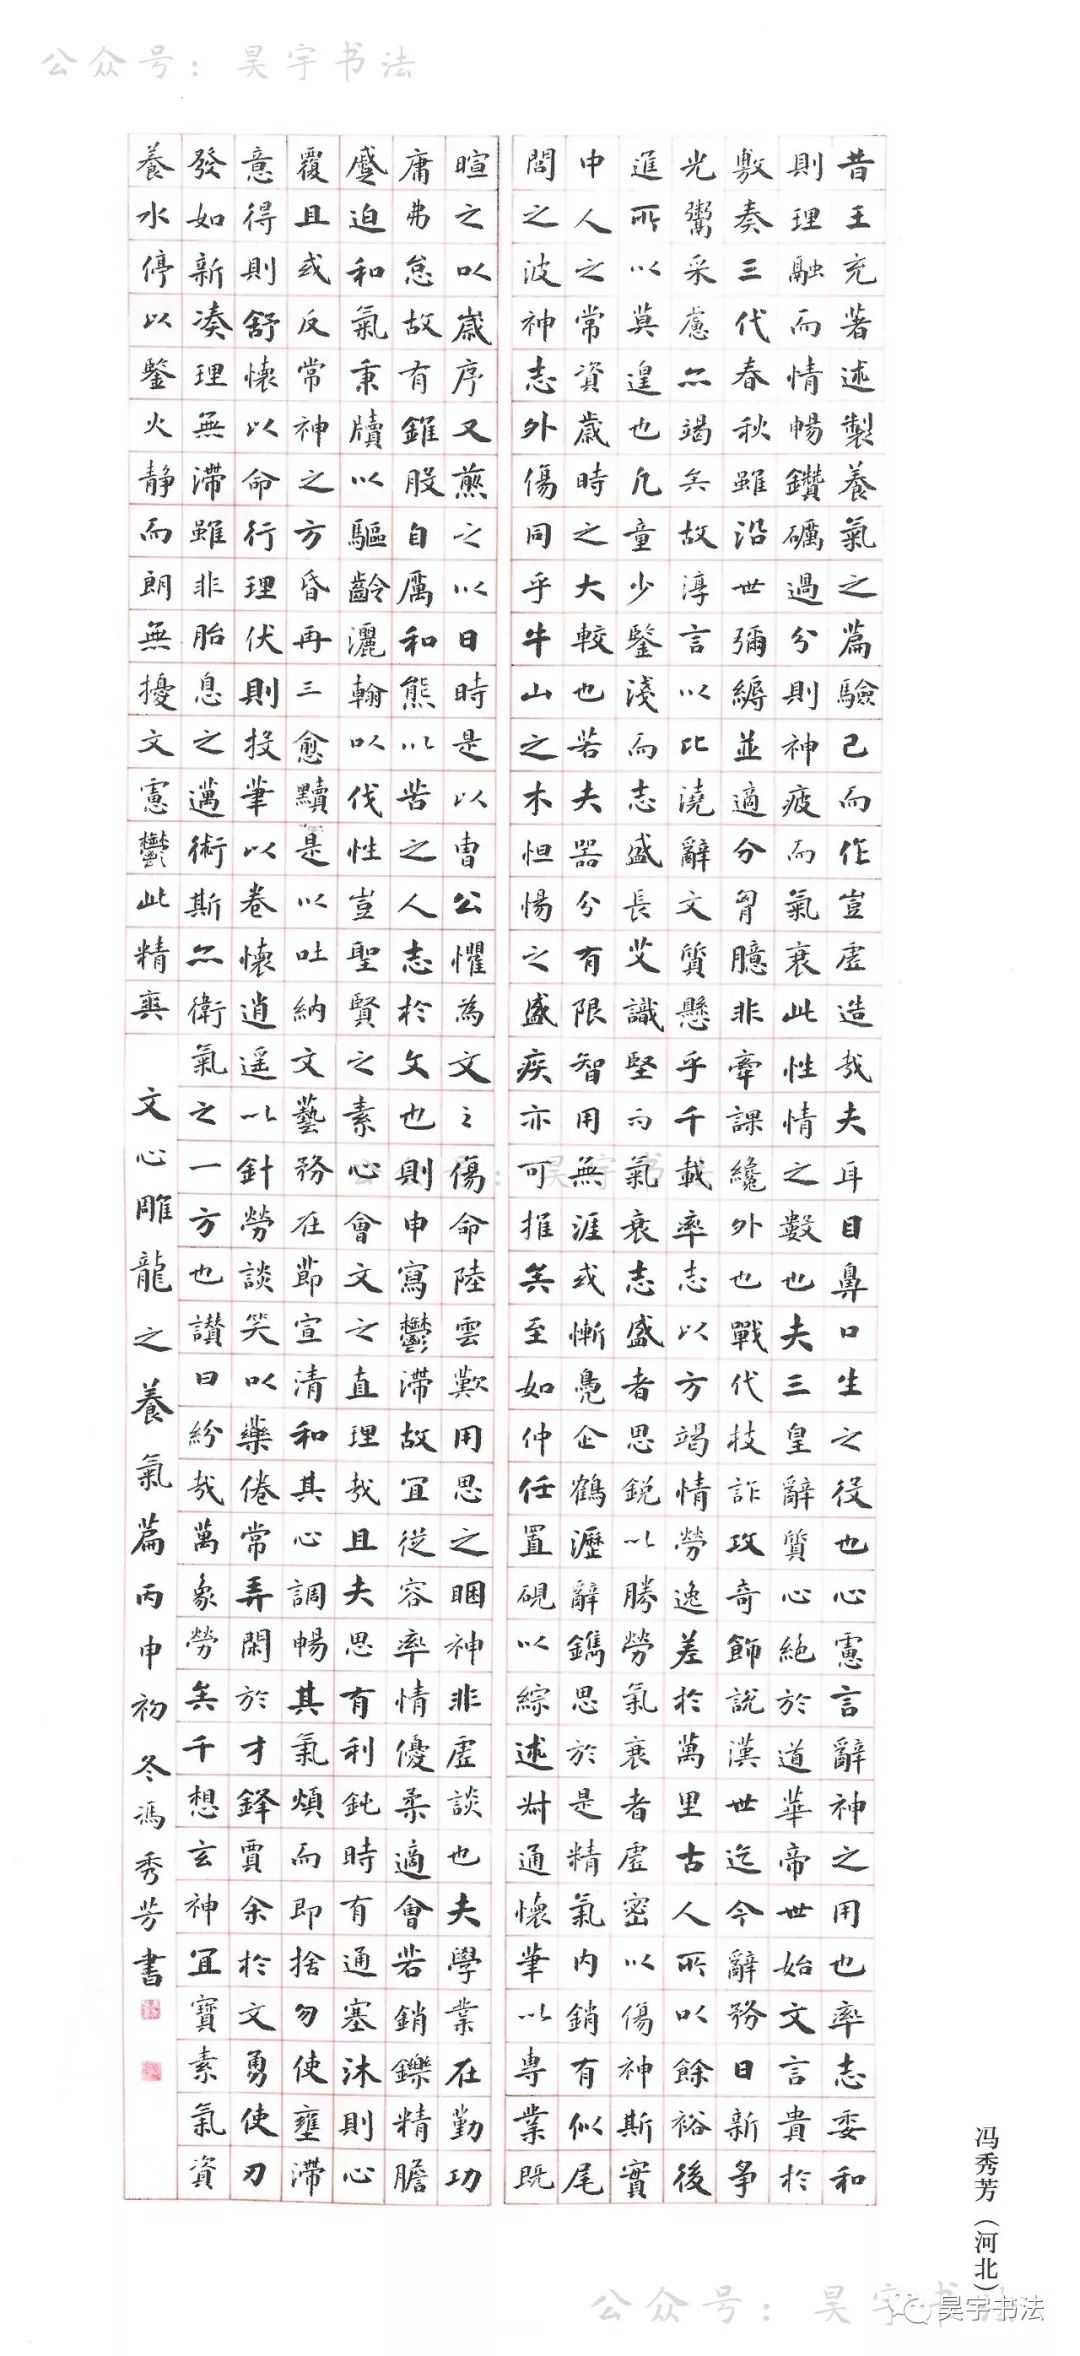 公众号：昊宇书法
昔王充著述製養氣之篇驗己而作豈虛造哉夫耳目鼻口生之役也心慮言辭神之用也率志委和
則理融而情暢鑽礪過分則神疲而氣衰此性情之數也夫三皇辭質心絕於道華帝世始文言貴於
敷奏三代春秋雖沿世彌縟並適分胷臆非牽課纔外也戰代技詐攻奇飾説漢世迄今辭務日新爭
光鬻采慮亦竭矣故淳言以比澆辭文質懸乎千載率志以方竭情勞逸差於萬里古人所以餘裕後
進所以莫遑也凡童少鑒淺而志盛長艾識堅而氣衰志盛者思鋭以勝勞氣衰者虛密以傷神斯實
中人之常資歲時之大較也若夫器分有限智用無涯或慚鳧企鶴瀝辭鐫思於是精氣内銷有似尾
閭之波神志外傷同乎牛山之木怛惕之盛疾亦可推矣至如仲任置硯以綜述叔通懷筆以專業既
暄之以歲序又煎之以日時是以曹公懼為文之傷命陸雲歎用思之睏神非虛談也夫學業在勤功
庸弗怠故有錐股自厲和熊以苦之人志於文也則申寫鬱滯故宜從容率情優柔適會若銷鑠精膽
蹙迫和氣秉牘以驅齡灑翰以伐性豈聖賢之素心會文之直理哉且夫思有利鈍時有通塞沐則心
覆且或反常神之方昏再三愈黷是以吐納文藝務在節宣清和其心調暢其氣煩而即捨勿使壅滯
意得則舒懷以命行理伏則投筆以卷懷逍遥以針勞談笑以藥倦常弄閑於才鋒賈余於文勇使刃
發如新湊理無滯雖非胎息之邁術斯亦衛氣之一方也讃曰紛哉萬象勞矣千想玄神宜寶素氣資
養水停以鑒火靜而朗無擾文慮鬱此精爽
文心雕龍之養氣篇丙申初冬馮秀芳書
公众号：昊宇书法
冯秀芳（河北）
公众号：昊宇书法
昊宇书法